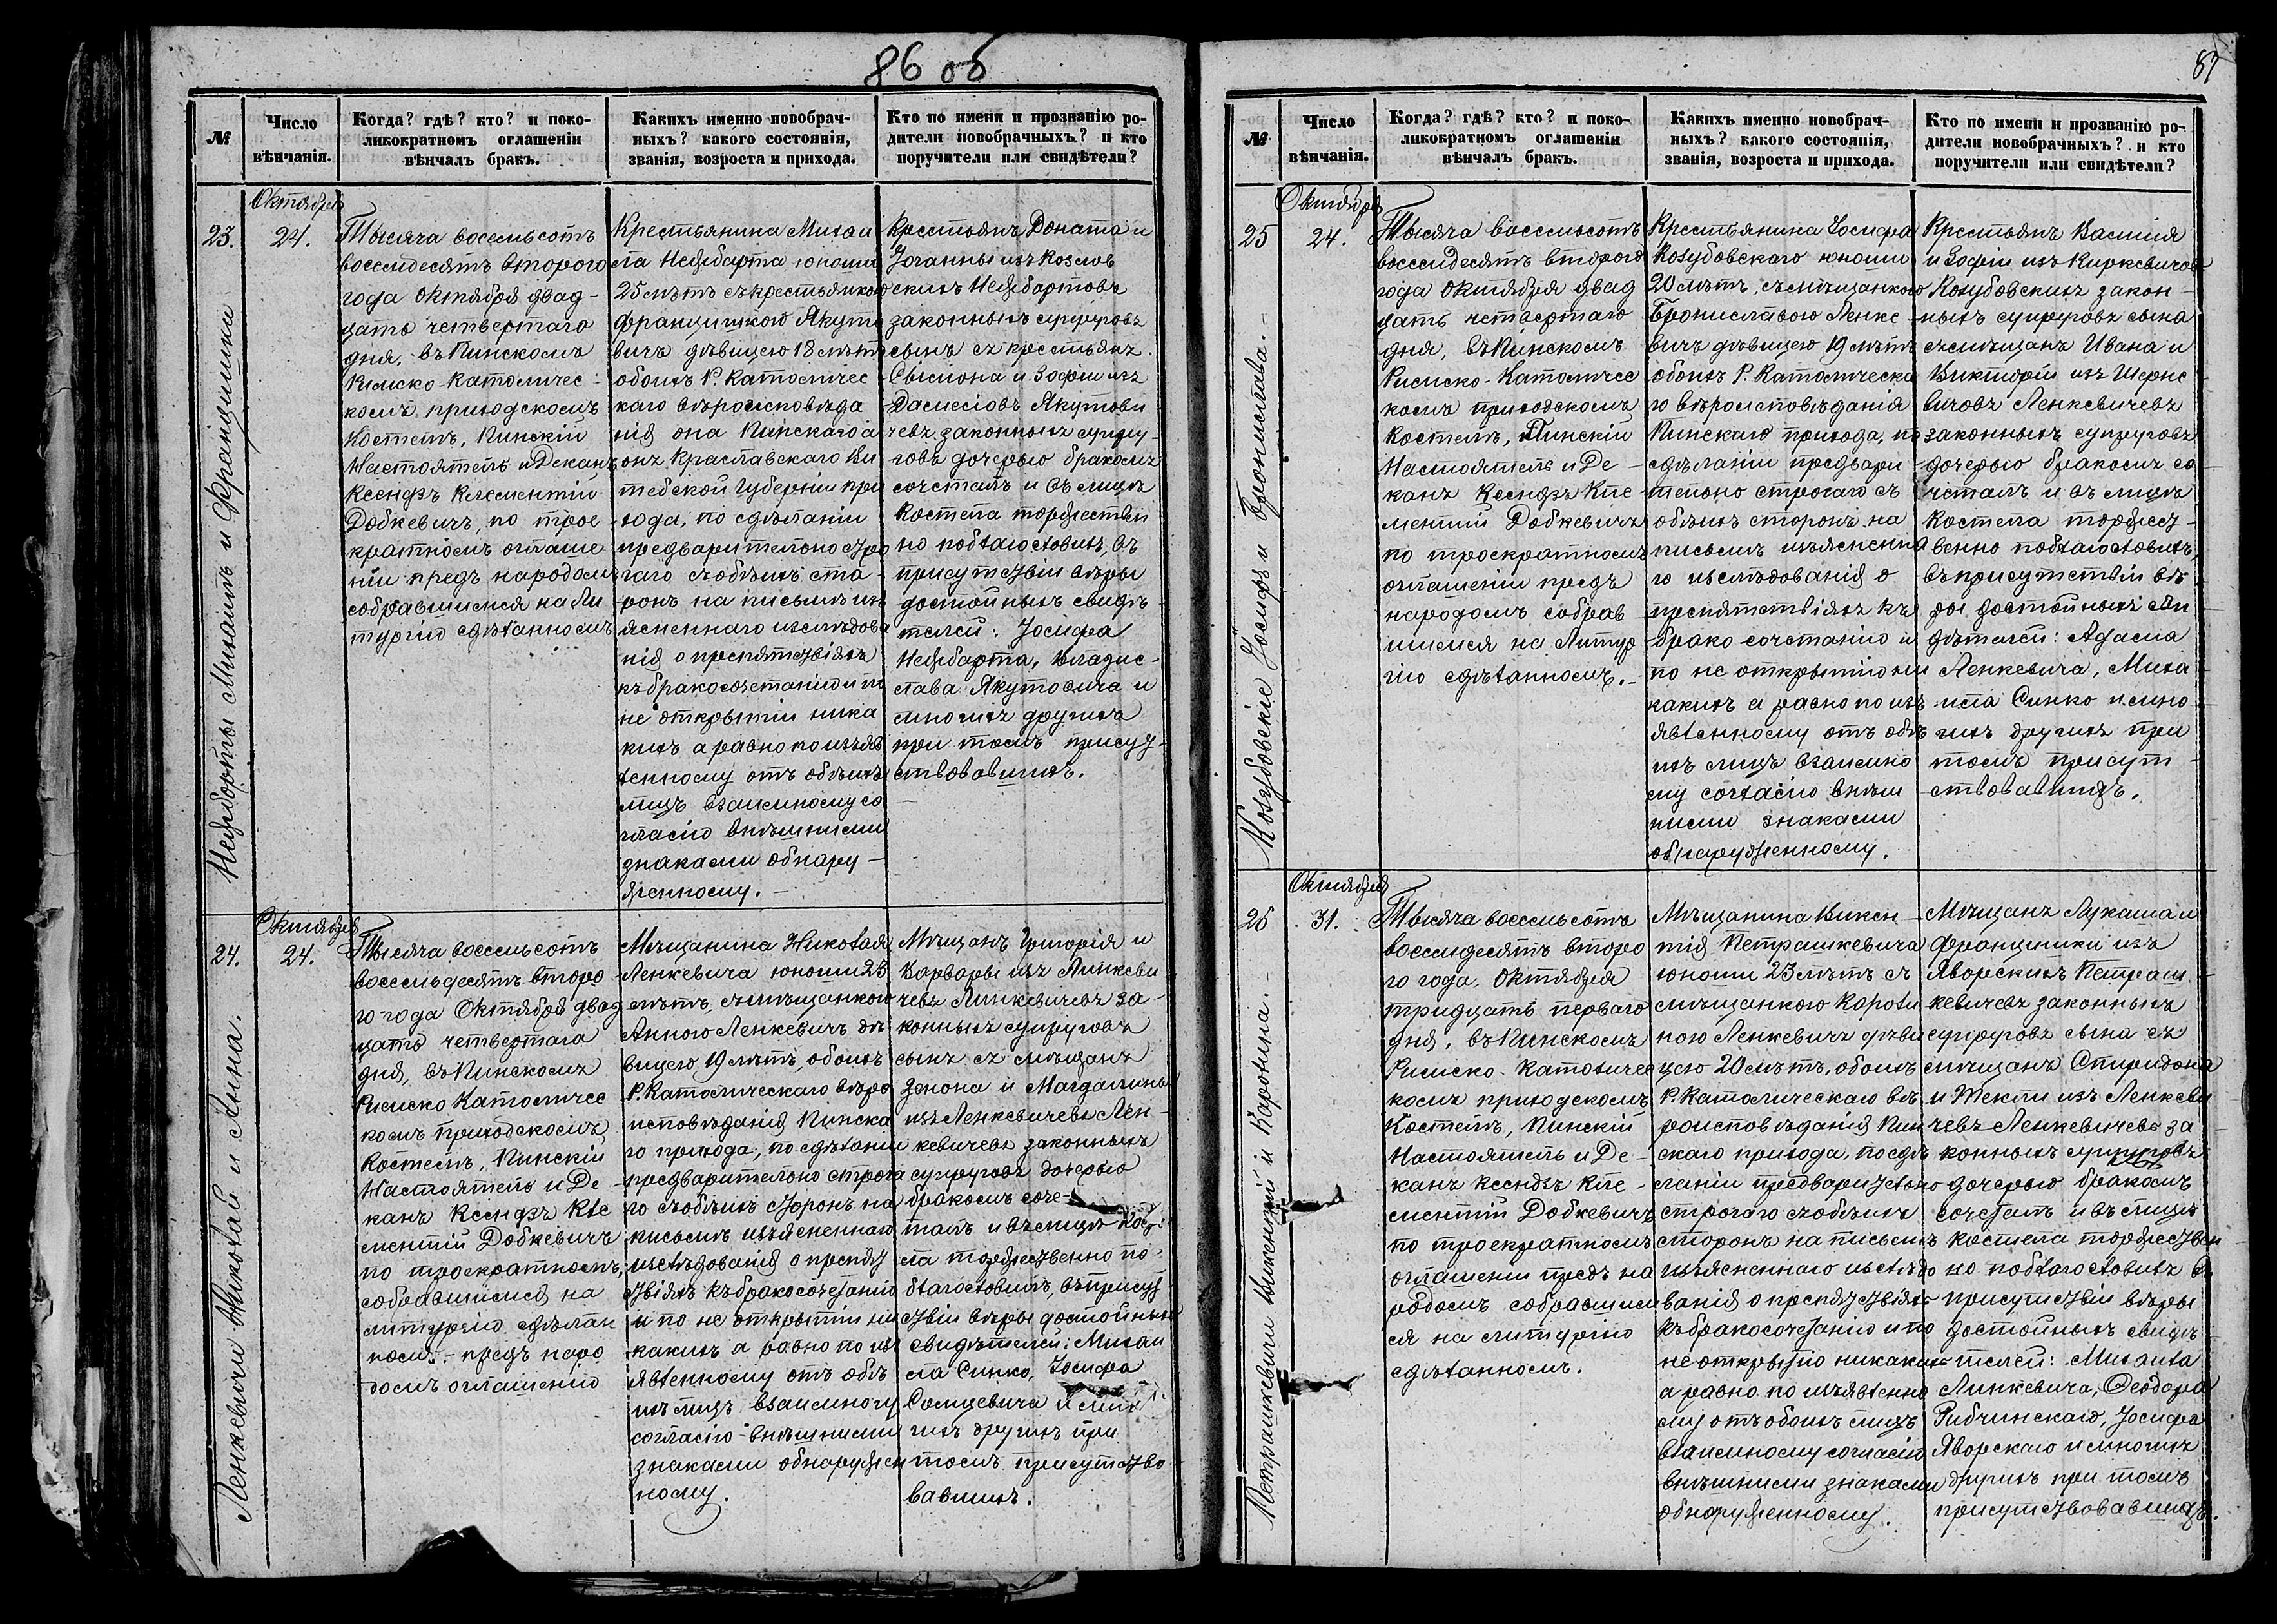 86 об
№
Число
вѣнчанія.
Когда? гдѣ? кто? и поко-
ликократномъ оглашеніи
вѣнчалъ бракъ.
Какихъ именно новобрач-
ныхъ? какого состоянія,
званія, возроста и прихода.
Кто по имени и прозванію ро-
дители новобрачныхъ? и кто
поручители или свидѣтели?
23.
Октября
24.
Тысяча восемьсотъ
восемдесятъ второго
года Октября двад-
цать четвертаго
дня, въ Пинскомъ
Римско-Католичес-
комъ приходскомъ
Костелѣ, Пинскій
Настоятель и Деканъ
Ксендзъ Клементій
Добкевичъ, по трое
кратномъ оглаше
ніи предъ народомъ
собравшимся на Ли
тургію сдѣланномъ
Крестьянина Михаи
ла юноши
25 лѣтъ съ крестьянкою
Францишкою Якуто
вичъ дѣвицею 18 лѣтъ
обоихъ Р. Католичес
каго вѣроисповѣда
нія она Пинскаго а
онъ Краславскаго Ви
тебской Губерніи при
хода, по сдѣланіи
предварительно стро
гаго съ обѣихъ сто-
ронъ на письмѣ изъ
ясненнаго изслѣдова
нія о препятствіяхъ
къ бракосочетанію и по
не открытіи ника
кихъ а равно по изъяв
ленному отъ обѣихъ
лицъ взаимному со
гласію внѣшними
знаками обнару-
женному.
Крестьянъ Доната и
Іоганны изъ Козлов
скихъ
законныхъ супруговъ
сынъ съ крестьянъ
и Зофіи изъ
Якутови-
чевъ законныхъ супру-
говъ дочерью бракомъ
сочеталъ и въ лицѣ
Костела торжествен
но поблагословилъ, въ
присутствіи вѣры
достойныхъ свидѣ-
телей: Іосифа
Владис-
лава Якутовича и
многихъ другихъ
при томъ присут-
ствовавшихъ.
Михаилъ и Францишка
24.
Октября
24.
Тысяча восемьсотъ
восемьдесятъ второ
го года Октября двад
цать четвертаго
дня, въ Пинскомъ
Римско Католичес
комъ приходскомъ
Костелѣ, Пинскій
Настоятель и Де-
канъ Ксендзъ Кле
ментій Добкевичъ
по троекратномъ,
собравшимся на
литургію сдѣлан
номъ - предъ наро
домъ оглашенію
Мѣщанина Николая
Ленкевича юноши 23
лѣтъ, съ мѣщанкою
Анною Ленкевичъ дѣ
вицею 19 лѣтъ, обоихъ
Р. Католическаго вѣро
исповѣданія Пинска
го прихода, по сдѣланіи
предварительно строга
го съ обѣихъ сторонъ на
письмѣ изъясненнаго
изслѣдованія о препят
ствіяхъ къ бракосочетанію
и по не открытіи ни
какихъ а равно по изъ
явленному отъ обѣ
ихъ лицъ взаимному
согласію внѣшними
знаками обнаружен
ному.
Мѣщанъ Григорія и
Варвары изъ Линкеви
чевъ Линкевичевъ за-
конныхъ супруговъ
сынъ съ мѣщанъ
Зенона и Магдалины
изъ Ленкевичевъ Лен-
кевичевъ законныхъ
супруговъ дочерью
бракомъ соче-
талъ и въ лицѣ Косте
ла торжественно по-
благословилъ, въ присут
ствіи вѣры достойныхъ
свидѣтелей: Михаи
ла Синко, Іосифа
и мно
гихъ другихъ при
томъ присутство-
вавшихъ.
Ленкевичи Николай и Анна.
87
№
Число
вѣнчанія.
Когда? гдѣ? кто? и поко-
ликократномъ оглашеніи
вѣнчалъ бракъ.
Какихъ именно новобрач-
ныхъ? какого состоянія,
званія, возроста и прихода.
Кто по имени и прозванію ро-
дители новобрачныхъ? и кто
поручители или свидѣтели?
25
Октября
24.
Тысяча восемьсотъ
восемдесятъ второго
года Октября двад
цать четвертаго
дня, въ Пинскомъ
Римско-Католичес
комъ приходскомъ
Костелѣ, Пинскій
Настоятель и Де-
канъ Ксендзъ Кле
ментій Добкевичъ
по троекратномъ
оглашеніи предъ
народомъ собрав
шимся на Литур
гію сдѣланномъ.-
Крестьянина Іосифа
Козубовскаго юноши
20 лѣтъ, съ мѣщанкою
Брониславою Ленке
вичъ дѣвицею 19 лѣтъ
обоихъ Р. Католическа
го вѣроисповѣданія
Пинскаго прихода, по
сдѣланіи предвари
тельно строгаго съ
обѣихъ сторонъ на
письмѣ изъясненна
го изслѣдованія о
препятствіяхъ къ
брако сочетанію и
по не открытію ни
какихъ а равно по изъ
явленному отъ обѣ
ихъ лицъ взаимно
му согласію внѣш
ними знаками
обнаруженному.
Крестьянъ Василія
и Зофіи изъ Киркевичовъ
Козубовскихъ закон-
ныхъ супруговъ сына
съ мѣщанъ Ивана и
Викторіи изъ Шерне
вичовъ Ленкевичевъ
законныхъ супруговъ
дочерью бракомъ со-
четалъ и въ лицѣ
Костела торжест-
венно поблагословилъ,
въ присутствіи вѣ
ры достойныхъ сви
дѣтелей: Адама
Ленкевича, Миха
ила Синко и мно
гихъ другихъ при
томъ присут
ствовавшихъ.
Козубовскіе Іосифъ и Бронислава.-
26
Октября
31.
Тысяча восемьсотъ
восемдесятъ второ
го года, Октября
тридцать перваго
дня, въ Пинскомъ
Римско-Католичес
комъ приходскомъ
Костелѣ, Пинскій
Настоятель и Де-
канъ Ксендзъ Кле-
ментій Добкевичъ
по троекратномъ
оглашеніи предъ на
родомъ собравшим
ся на литургію
сдѣланномъ.
Мѣщанина Викен-
тія Петрашкевича
юноши 23 лѣтъ съ
мѣщанкою Короли
ною Ленкевичъ дѣви
цею 20 лѣтъ, обоихъ
Р. Католическаго вѣ
роисповѣданія Пин
скаго прихода, по сдѣ
ланіи предварительно
строгаго съ обѣихъ
сторонъ на письмѣ
изъясненнаго изслѣдо
ванія о препятствіяхъ
къ бракосочетанію и по
не открытію никакихъ
а равно по изъявленно
му отъ обоихъ лицъ
взаимному согласію
внѣшними знаками
обнаруженному.
Мѣщанъ Лукаша и
Францишки изъ
Яворскихъ Петраш-
кевичевъ законныхъ
супруговъ сына съ
мѣщанъ Спиридона
и Текли изъ Ленкеви
чевъ Ленкевичевъ за-
конныхъ супруговъ
дочерью бракомъ
сочеталъ и въ лицѣ
Костела торжествен
но поблагословилъ въ
присутствіи вѣры
достойныхъ свидѣ-
телей: Михаила
Линкевича, Феодора
Рибчинскаго, Іосифа
Яворскаго и многихъ
другихъ при томъ
присутствовавшихъ.
Петрашкевичи Викентій и Королина.-